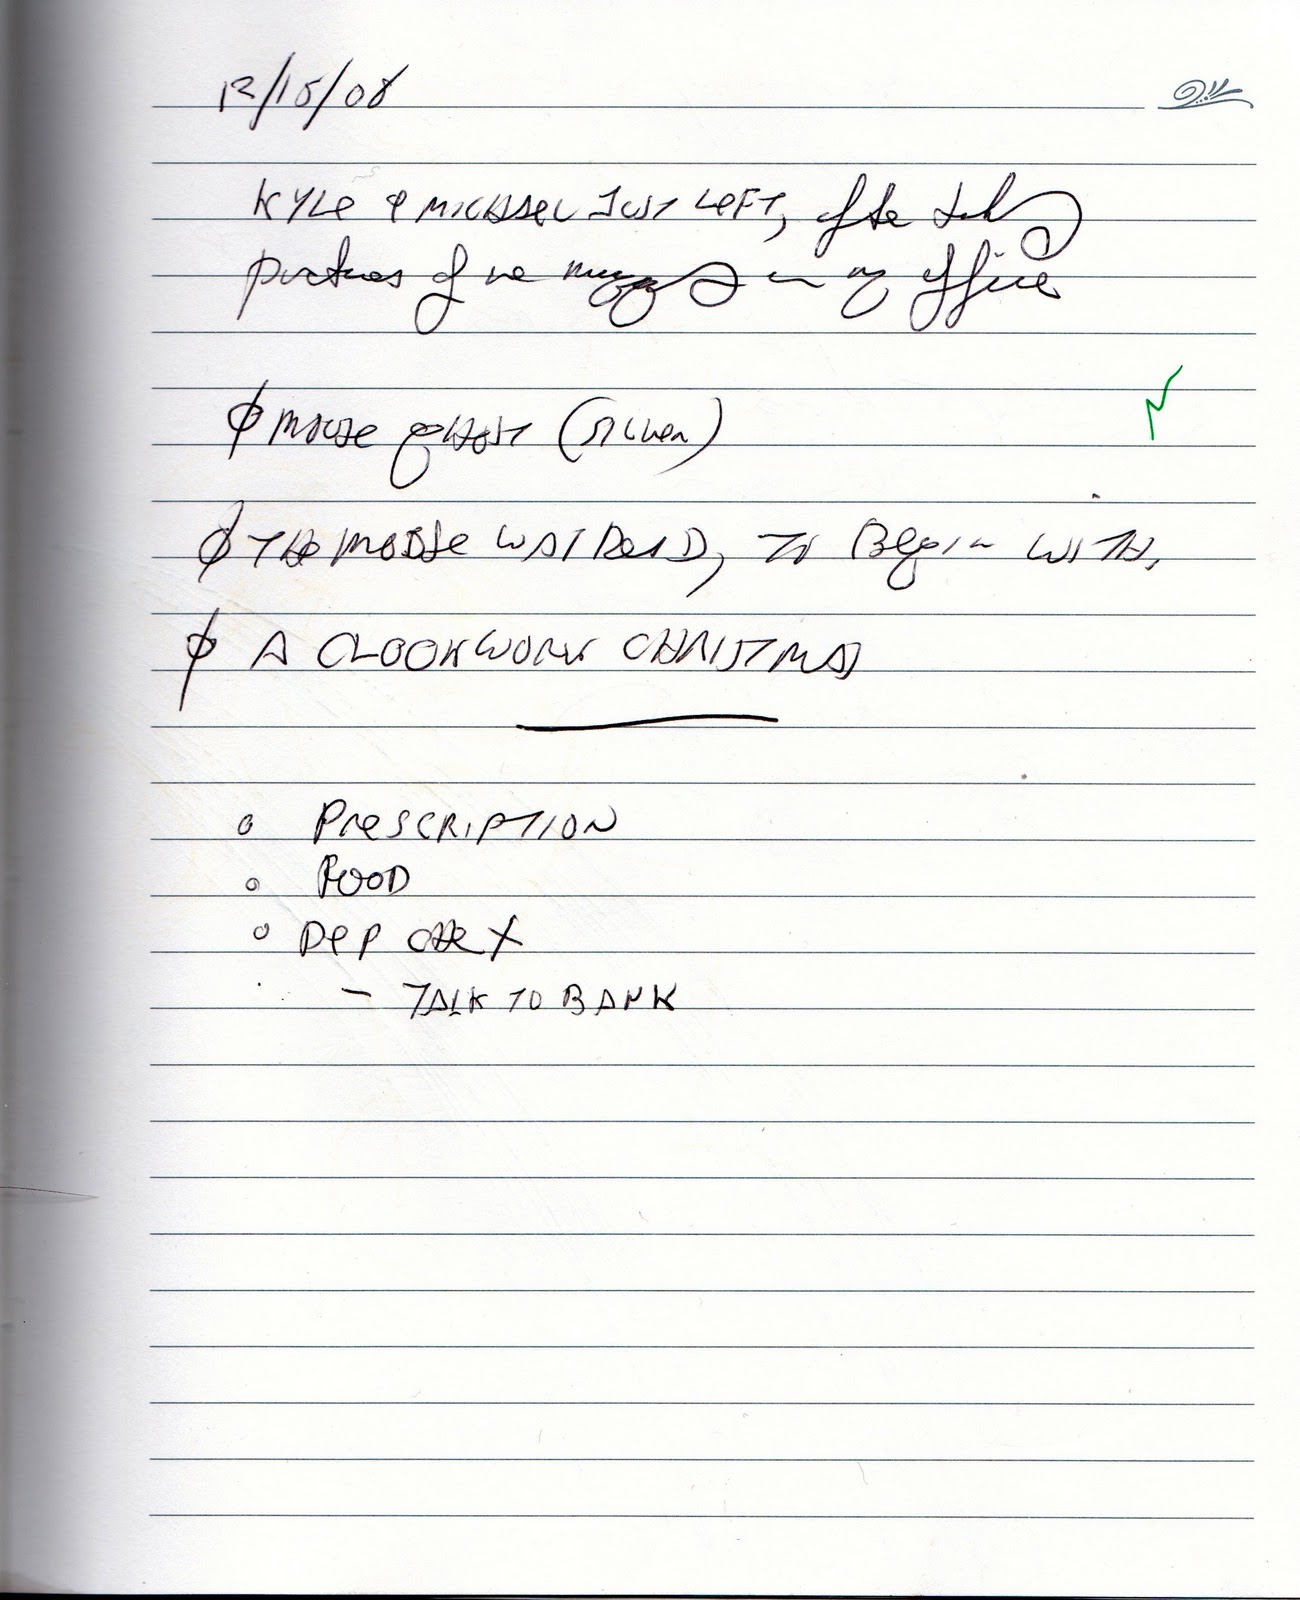 12/15/08
KYLE & MICHAEL JUST LEFT, after taking
pictures of me mugging in my office
φ MOUSE GHOST (SILVER)
φ THE MOUSE WAS DEAD, TO BEGIN WITH.
φ A CLOCKWORK CHRISTMAS
o PRESCRIPTION
o FOOD
o DEP CHEX
– TALK TO BANK